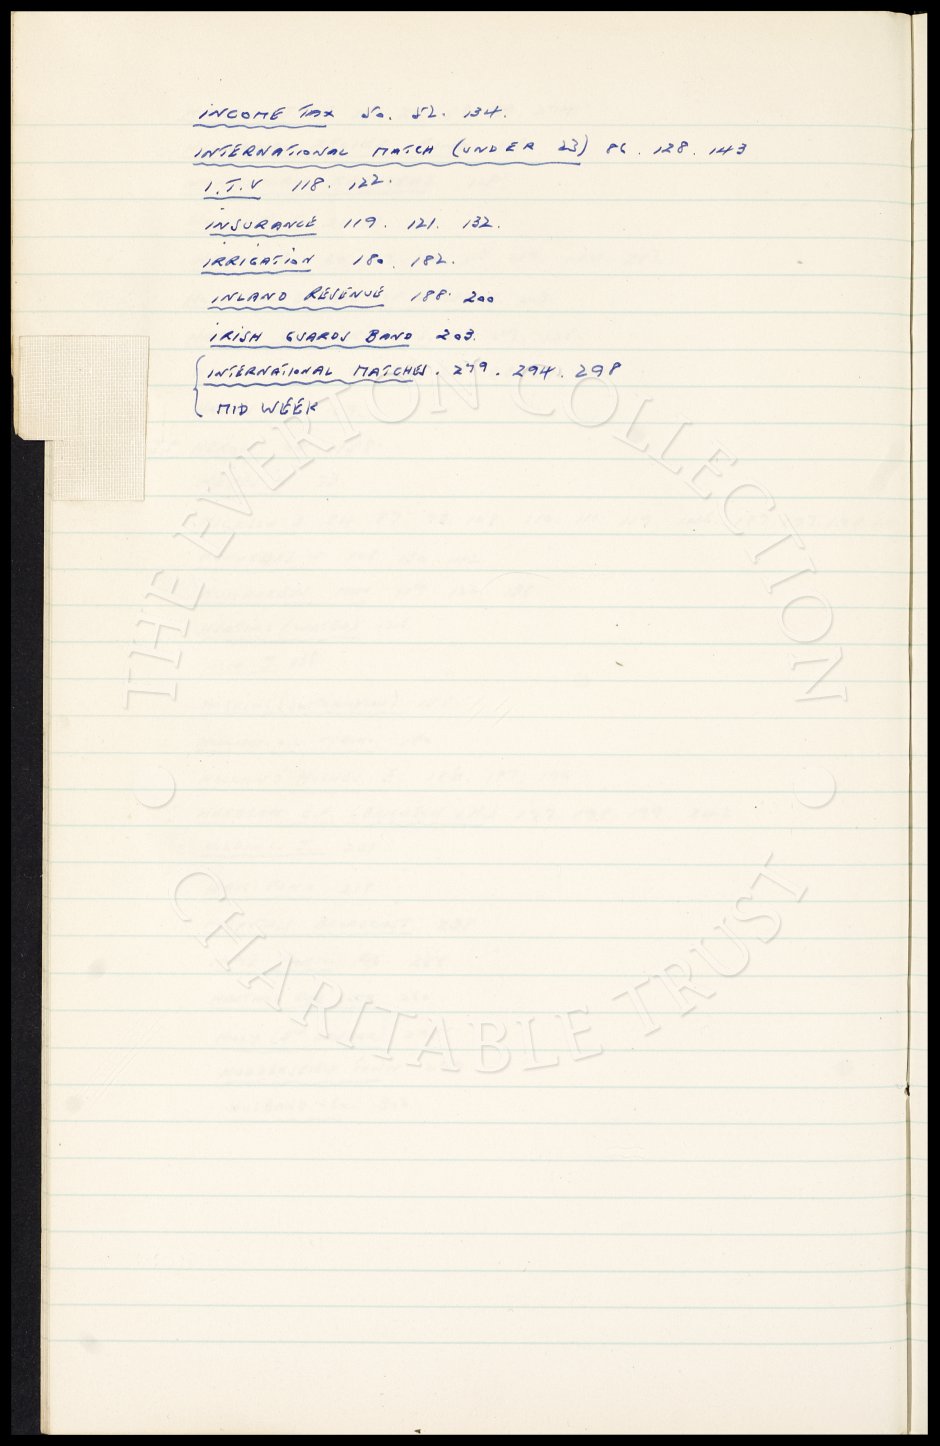 INCOME TAX 50. 52. 134.
INTERNATIONAL MATCH (UNDER 23) 86. 128. 143
I.T.V 118. 122.
INSURANCE 119. 121. 132.
IRRIGATION 180. 182.
INLAND REVENUE 188. 200
IRISH GUARDS BAND 203.
INTERNATIONAL MATCHES. 279. 294. 298
MID WEEK
© THE EVERTON COLLECTION ©
CHARITABLE TRUST